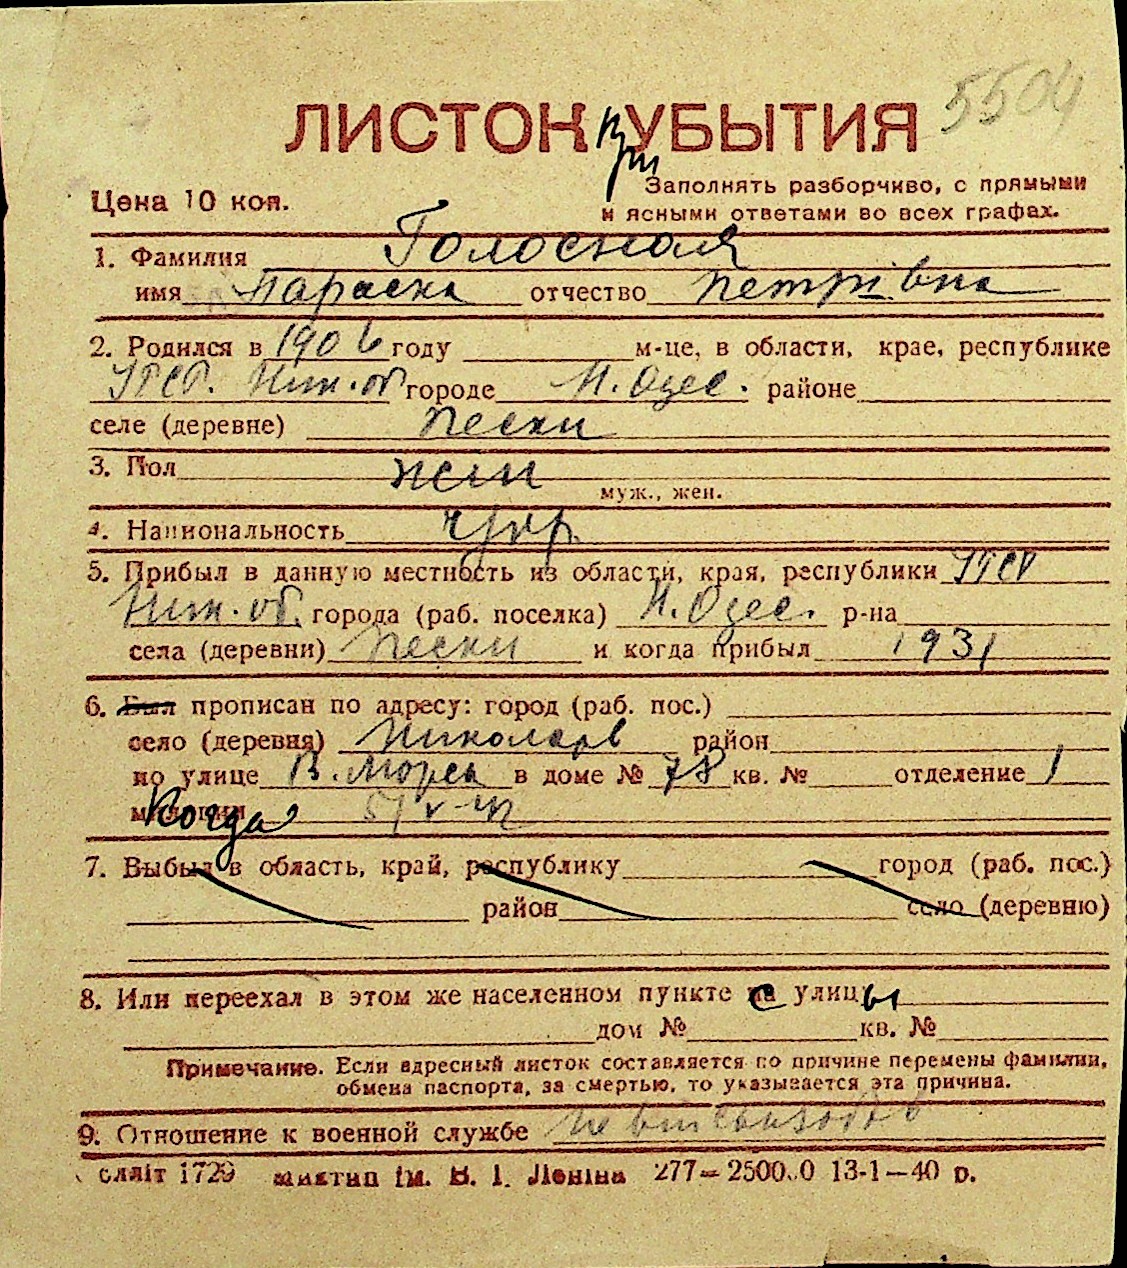 5504
ЛИСТОК при УБЫТИЯ
Цена 10 коп.
Заполнять разборчиво, с прямыми
и ясными ответами во всех графах.
1. Фамилия Голосная
имя Параска отчество Петрівна
2. Родился в 1906 году м-це, в области, крае, республике
УРСР. Ник. об городе Н. Одес. районе
селе (деревне) Пески
3. Пол жен
муж., жен.
4. Национальность укр.
5. Прибыл в данную местность из области, края, республики УРСР
Ник. об. города (раб. поселка) Н. Одес. р-на
села (деревни) Пески и когда прибыл 1931
6. Был прописан по адресу: город (раб. пос.)
село (деревня) Николаев район
по улице В. Морск в доме № 78 кв. № отделение 1
милиции Когда
7. Выбыл в область, край, республику город (раб. пос.)
район село (деревню)
8. Или переехал в этом же населенном пункте с улицы
дом № кв. №
Примечание. Если адресный листок составляется по причине перемены фамилии,
обмена паспорта, за смертью, то указывается эта причина.
9. Отношение к военной службе
1729 ім. В. І. Леніна 277— 13-1—40 р.